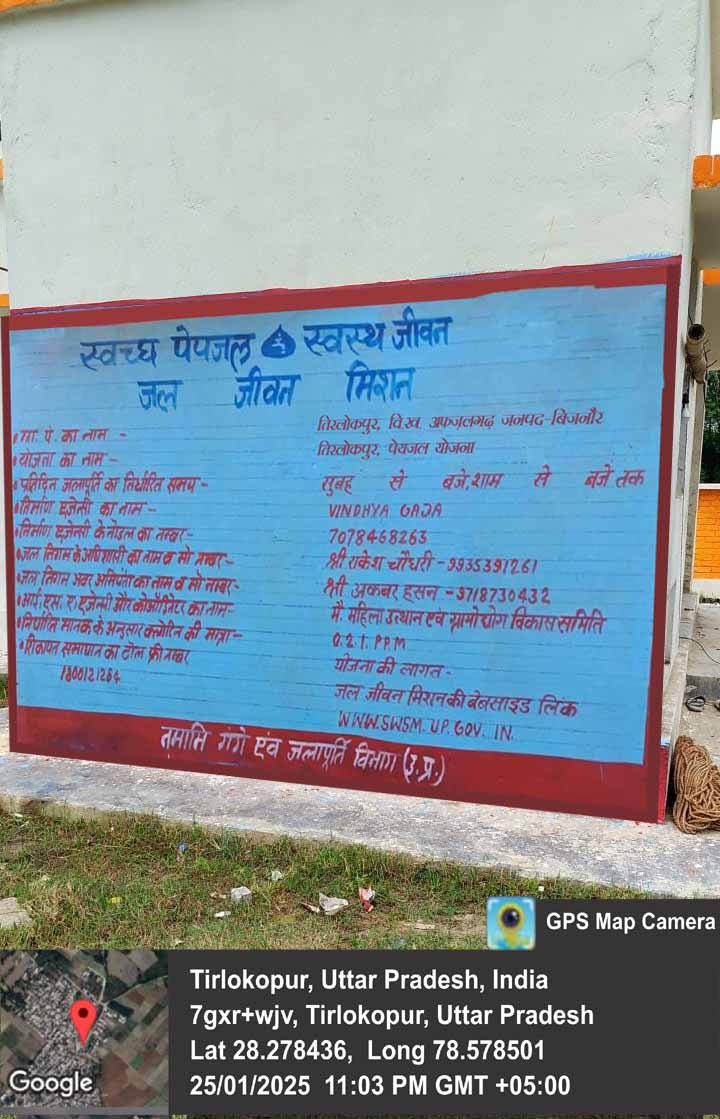 स्वच्छ पेयजल स्वस्थ जीवन
जल जीवन मिशन
ग्रा. पं. का नाम - तिरलोकपुर, वि.ख. अफजलगढ़ जनपद-बिजनौर
योजना का नाम - तिरलोकपुर, पेयजल योजना
प्रतिदिन जलापूर्ति का निर्धारित समय - सुबह से बजे, शाम से बजे तक
निर्माण एजेन्सी का नाम - VINDHYA GAJA
निर्माण एजेन्सी के नोडल का नम्बर - 7078468263
जल निगम के अधिशासी का नाम व मो नम्बर - श्री राकेश चौधरी - 9935391261
जल निगम अवर अभियंता का नाम व मो नम्बर - श्री अकबर हसन - 9718730432
आई. एस. ए. एजेन्सी और कोऑर्डिनेटर का नाम - मै. महिला उत्थान एवं ग्रामोद्योग विकास समिति
निर्धारित मानक के अनुसार क्लोरीन की मात्रा - 0.21. PPM
शिकायत समाधान का टोल फ्री नम्बर योजना की लागत -
1800121264 जल जीवन मिशन की वेबसाइड लिंक
WWW.SWSM.UP.GOV. IN.
नमामि गंगे एंव जलापूर्ति विभाग (उ.प्र.)
GPS Map Camera
Google
Tirlokopur, Uttar Pradesh, India
7gxr+wjv, Tirlokopur, Uttar Pradesh
Lat 28.278436, Long 78.578501
25/01/2025 11:03 PM GMT +05:00